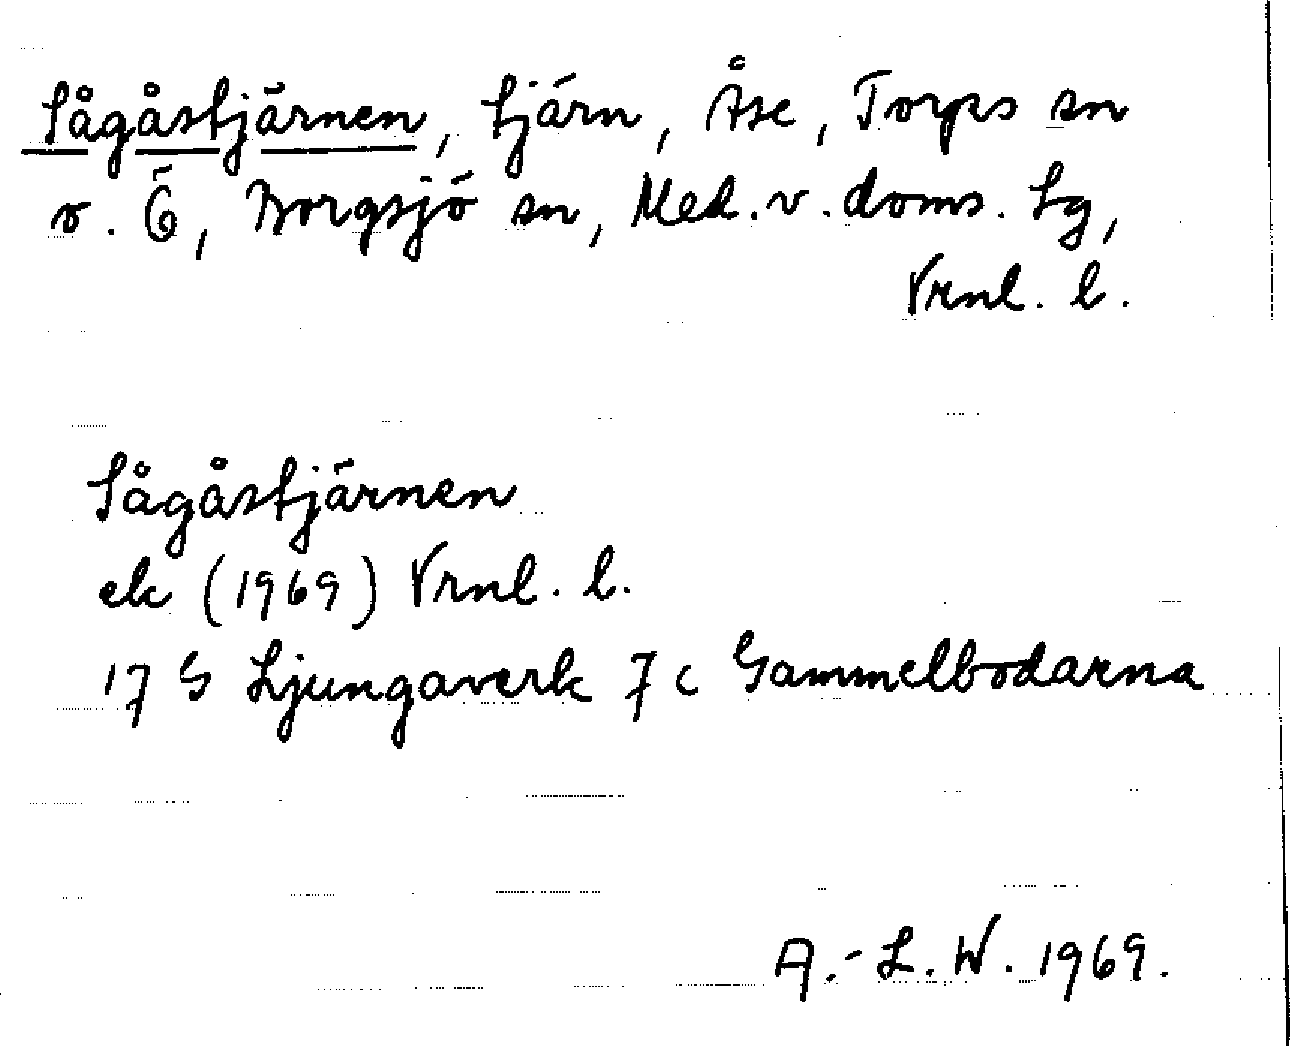 Sågåstjärnen, tjärn, Åse, Torps sn
o. Ö, Borgsjö sn, Med. v. doms. tg,
Vrnl. l.
Sågåstjärnen
ek (1969) Vrnl. l.
17 G Ljungaverk 7 c Gammelbodarna
A.-L. W. 1969.